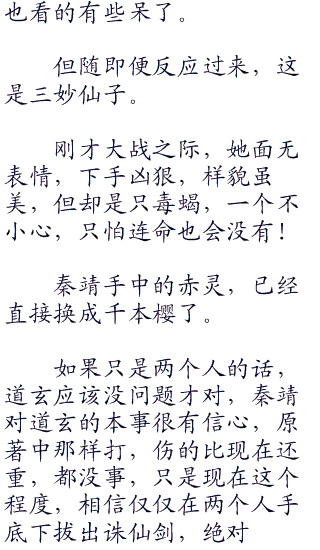 也看的有些呆了。
但随即便反应过来，这
是三妙仙子。
刚才大战之际，她面无
表情，下手凶狠，样貌虽
美，但却是只毒蝎，一个不
小心，只怕连命也会没有！
秦靖手中的赤灵，已经
直接换成千本樱了。
如果只是两个人的话，
道玄应该没问题才对，秦靖
对道玄的本事很有信心，原
著中那样打，伤的比现在还
重，都没事，只是现在这个
程度，相信仅仅在两个人手
底下拔出诛仙剑，绝对